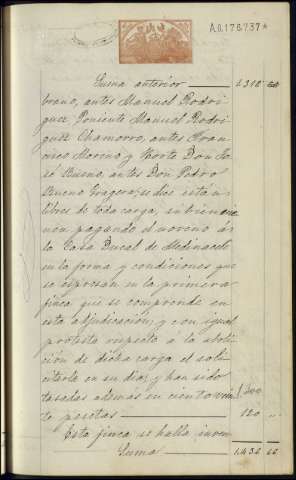 A.0.176.737*
Suma anterior 1.312 60
brano, antes Manuel Rodri-
guez Poniente Manuel Rodri-
guez Chamorro, antes Fran-
cisco Moreno y Norte Don Jo-
sé Bueno, antes Don Pedro
Bueno Gragera; se dice están
libres de toda carga, si bien
vienen pagando el noveno á
la Casa Ducal de Medinaceli
en la forma y condiciones que
se espresan en la primera
finca que se comprende en
esta adjudicación; y con igual
protesta respecto a la aboli-
ción de dicha carga el soli-
citarla en su dia; y han sido
tasadas ademas en ciento vein-
te pesetas 120 "
Esta finca se halla inven-
Suma 1.432 60